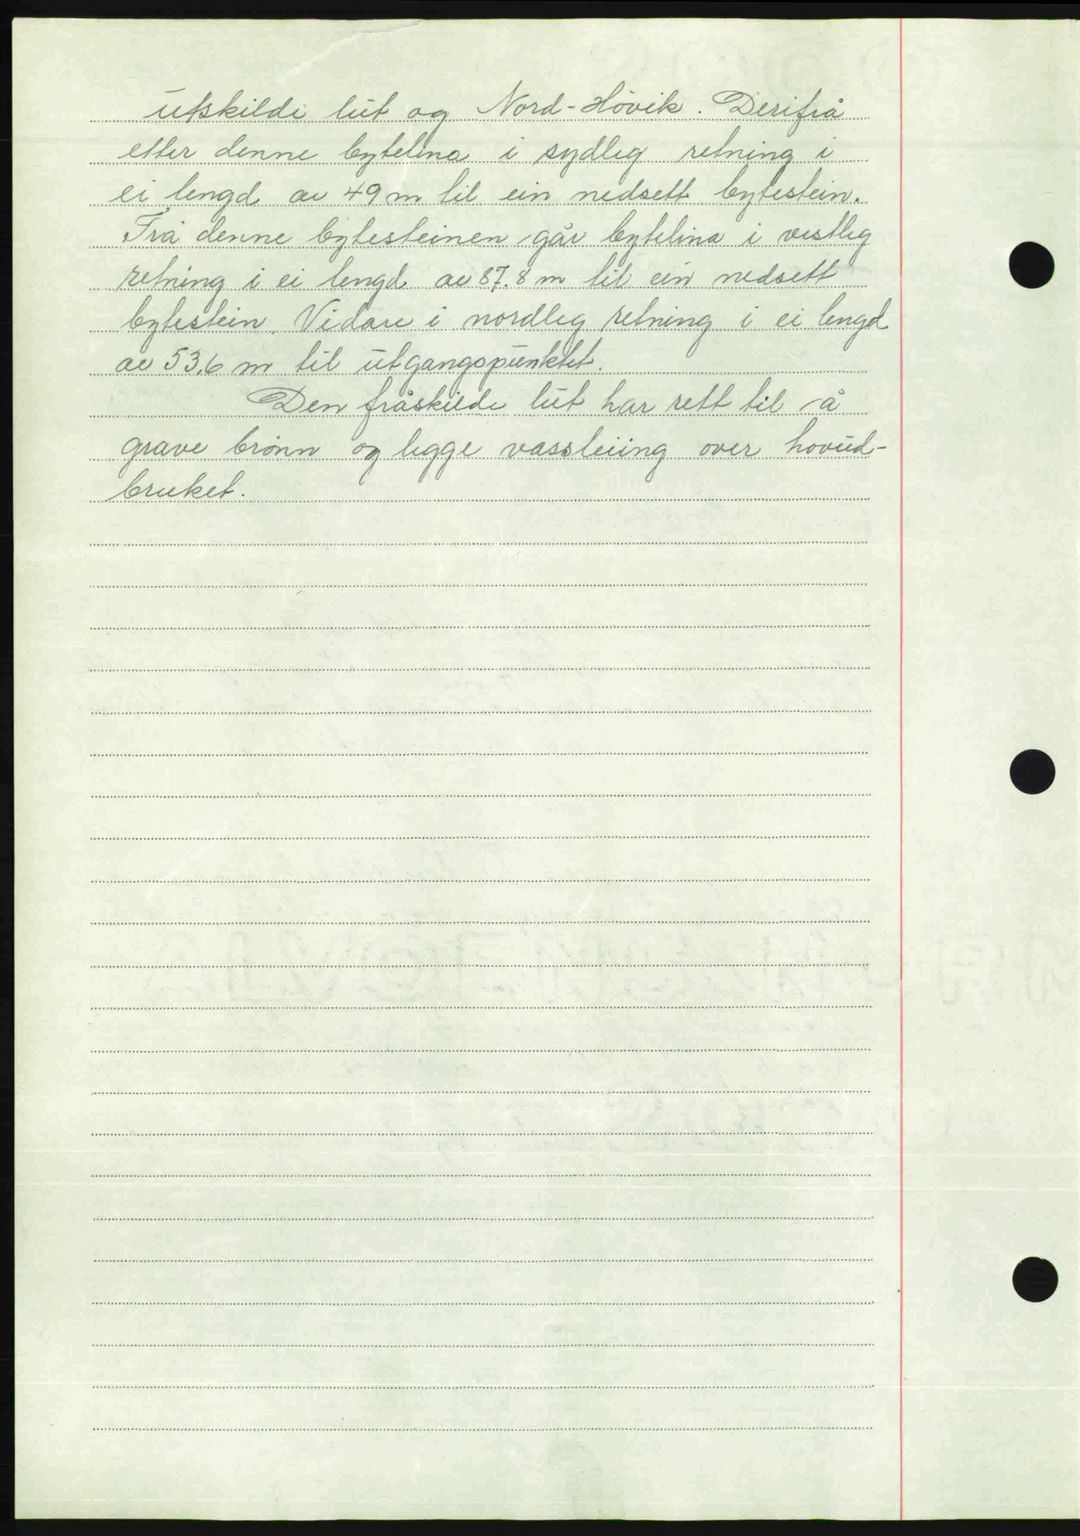 utskilde lut og Nord-Høvik. Derifrå
etter denne bytelina i sydleg retning i
ei lengd av 49 m til ein nedsett bytestein.
Frå denne bytesteinen går bytelina i vestleg
retning i ei lengd av 87.8 m til ein nedsett
bytestein. Vidare i nordleg retning i ei lengd
av 53,6 m til utgangspunktet.
Den fråskilde lut har rett til å
grave brønn og legge vassleiing over hovud-
bruket.